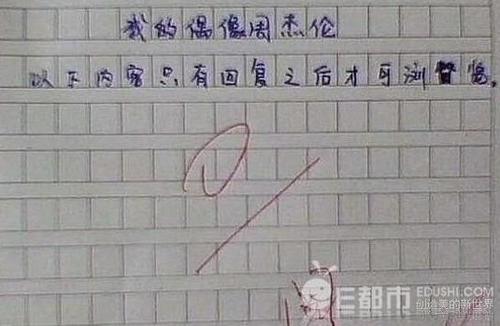 我的偶像周杰伦
以下内容只有回复之后才可浏览。
E都市 EDUSHI.COM
创造美的新世界